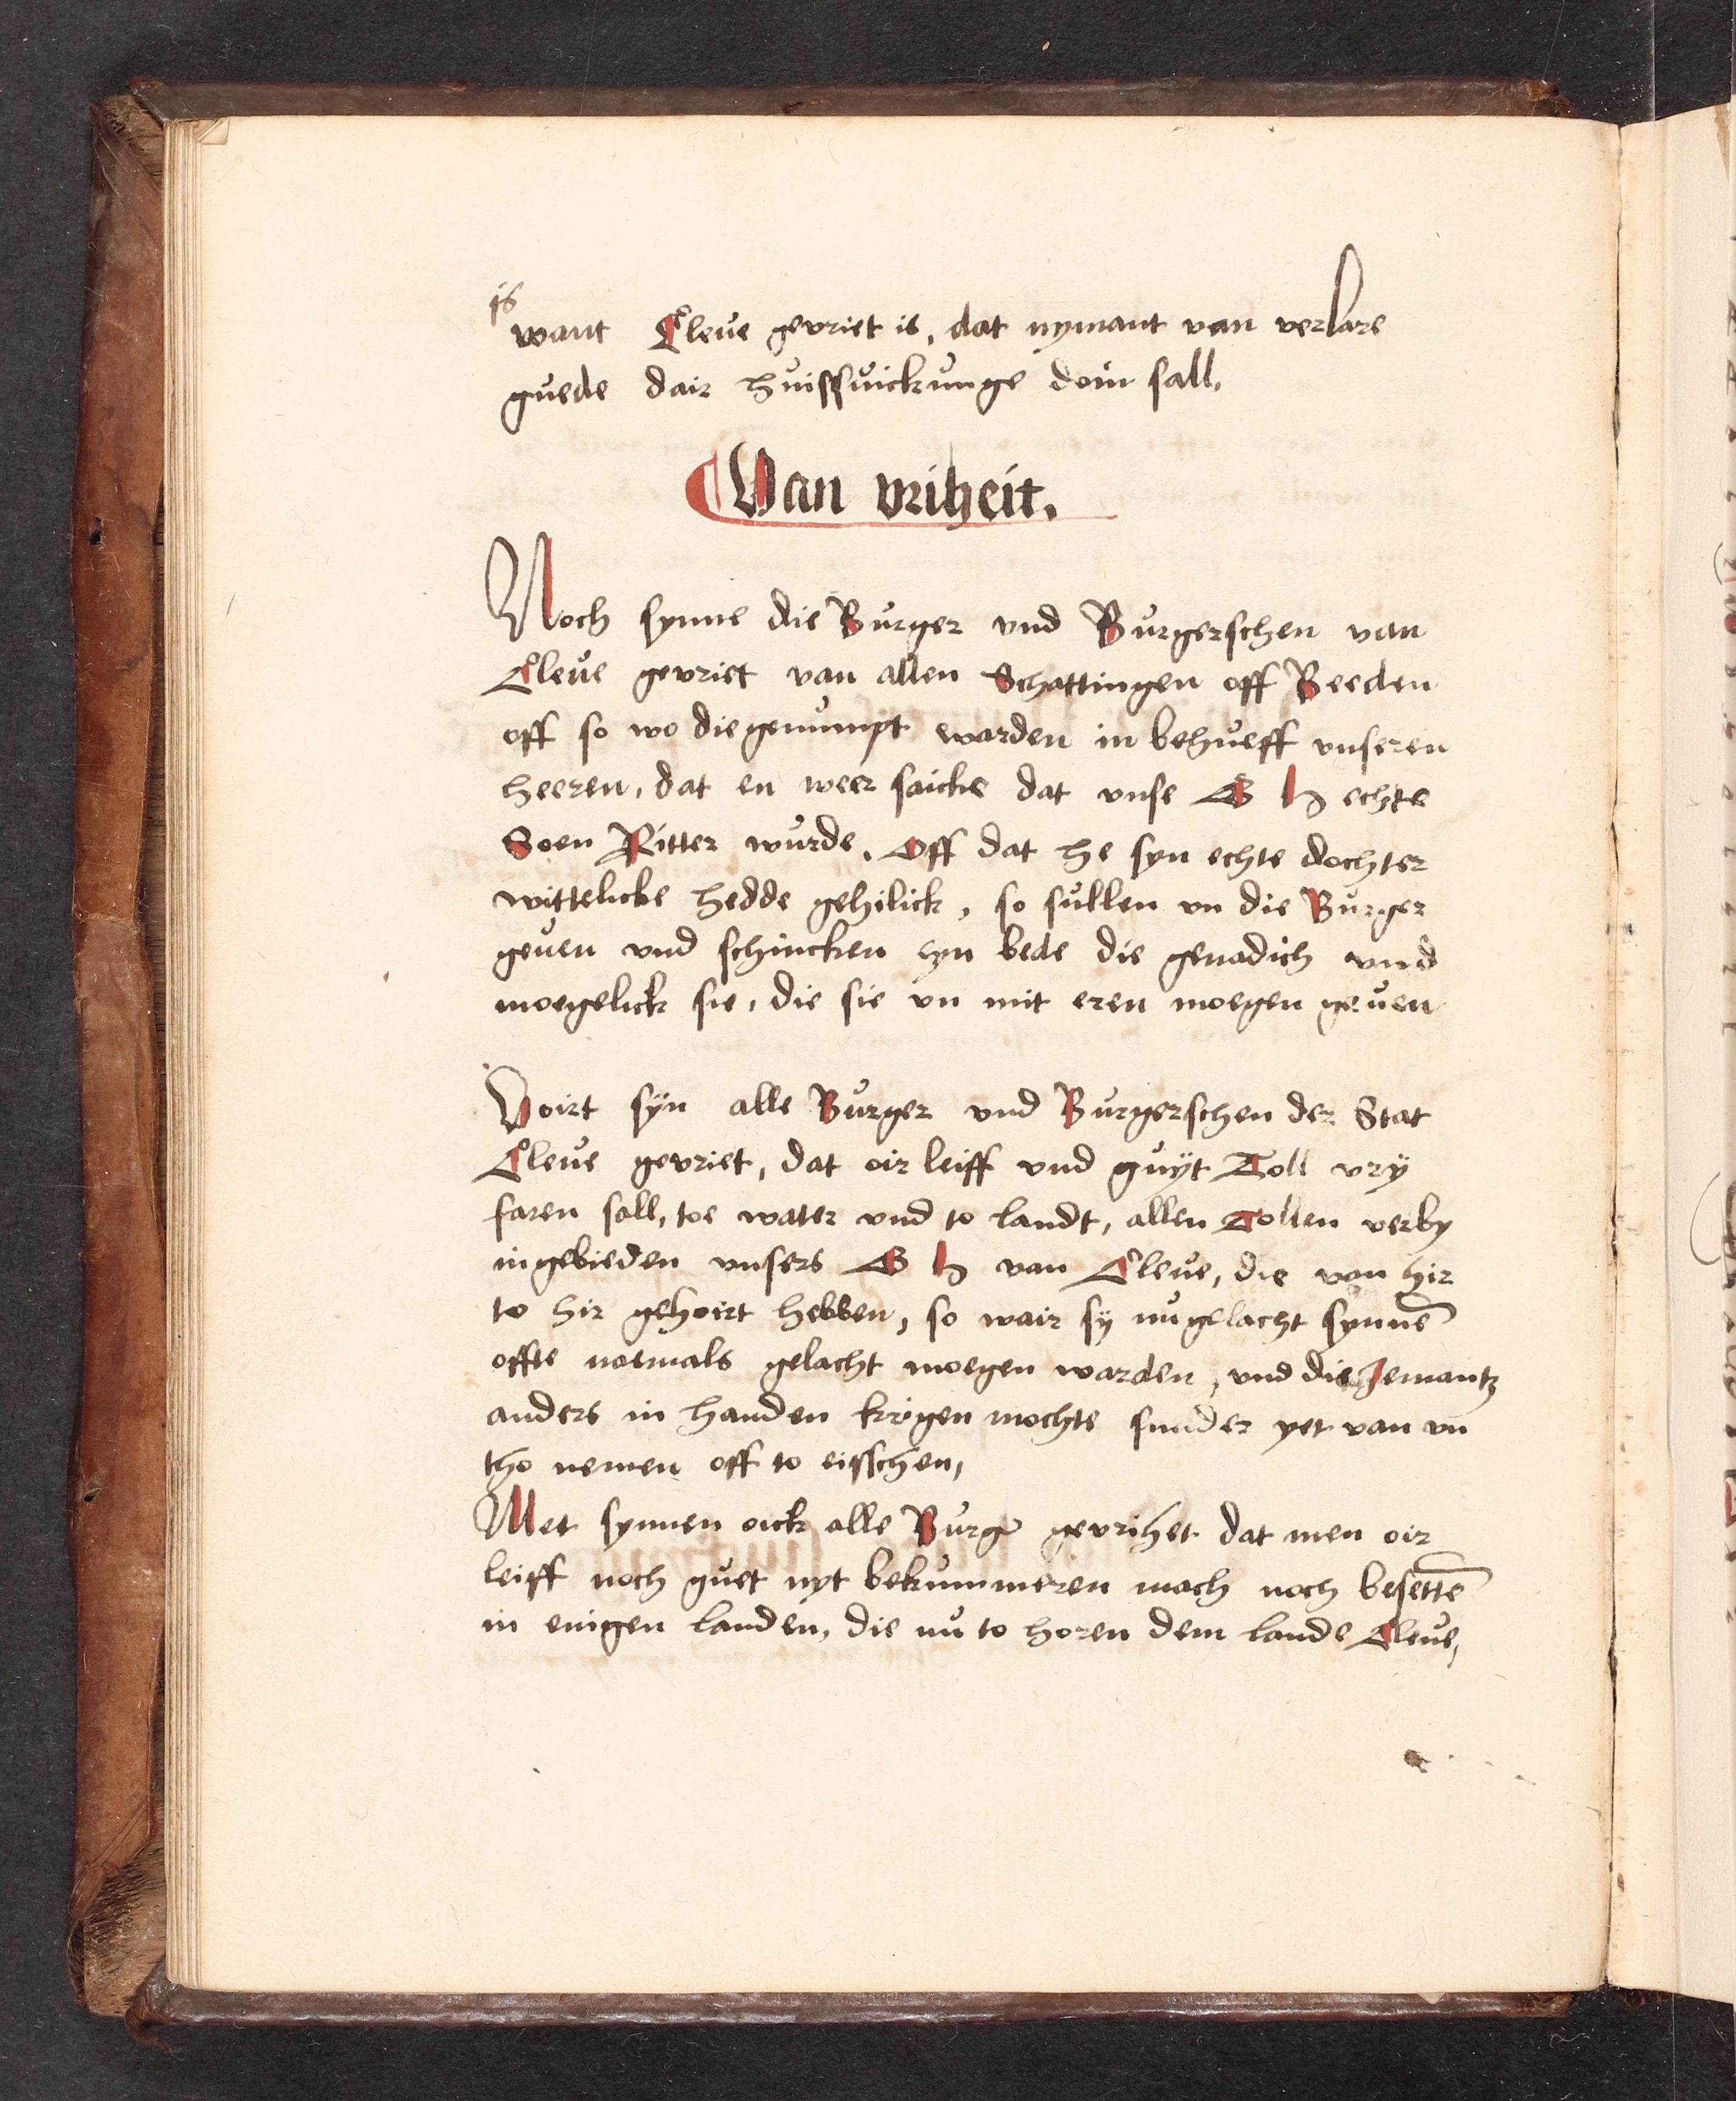 is
want Cleve gevriet is, dat nymant van verlare
guede dair huissuickunge doin sall,
Van vriheit.
Noch synne die Burger vnd Burgerschen van
Cleve gevriet van allen Schattingen off Beeden
off so wo die genumpt warden in behueff vnseren
heeren, dat en weer saicke dat vnse G h echte
Soen Ritter wurde, Off dat he syn echte dochter
wittelicke hedde gehilick, so sullen vn die Burger
geven vnd schincken eyn bede die genadich vnd
moegelick sie, die sie vn mit eren moegen geven
Voirt sÿn alle Burger vnd Burgerschen der Stat
Cleve gevriet, dat oir leiff vnd guÿt Toll vrÿ
faren sall, toe water vnd to landt, allen Tollen verby
in gebieden vnsers G h van Cleve, die van hir
to hir gehoirt hebben, so wair sÿ nu gelacht synnē
offte naemals gelacht moegen warden, vnd die Jemantz
anders in handen krigen mochte sunder yet van vn
tho nemen off to eisschen,
Met synnen oick alle Burg' gevrihet dat men oir
leiff noch guet nyt bekummeren mach noch besettē
in enigen landen, die nu to horen dem lande Cleve,